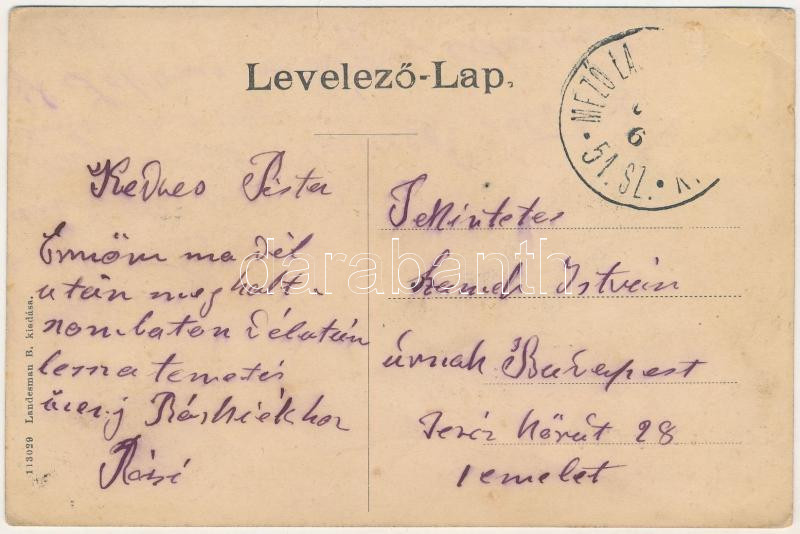 Levelező-Lap.
MEZŐ LA
6
51. SZ.
Kedves Pista
Ernőm ma dél
után meg halt
szombaton délután
lessz a temetés
üzenj Báskiékhoz
Rózsi
Tekintetes
István
úrnak Budapest
Teréz Körút 28
1 emelet
113029 Landesman B. kiadása.
darabanth